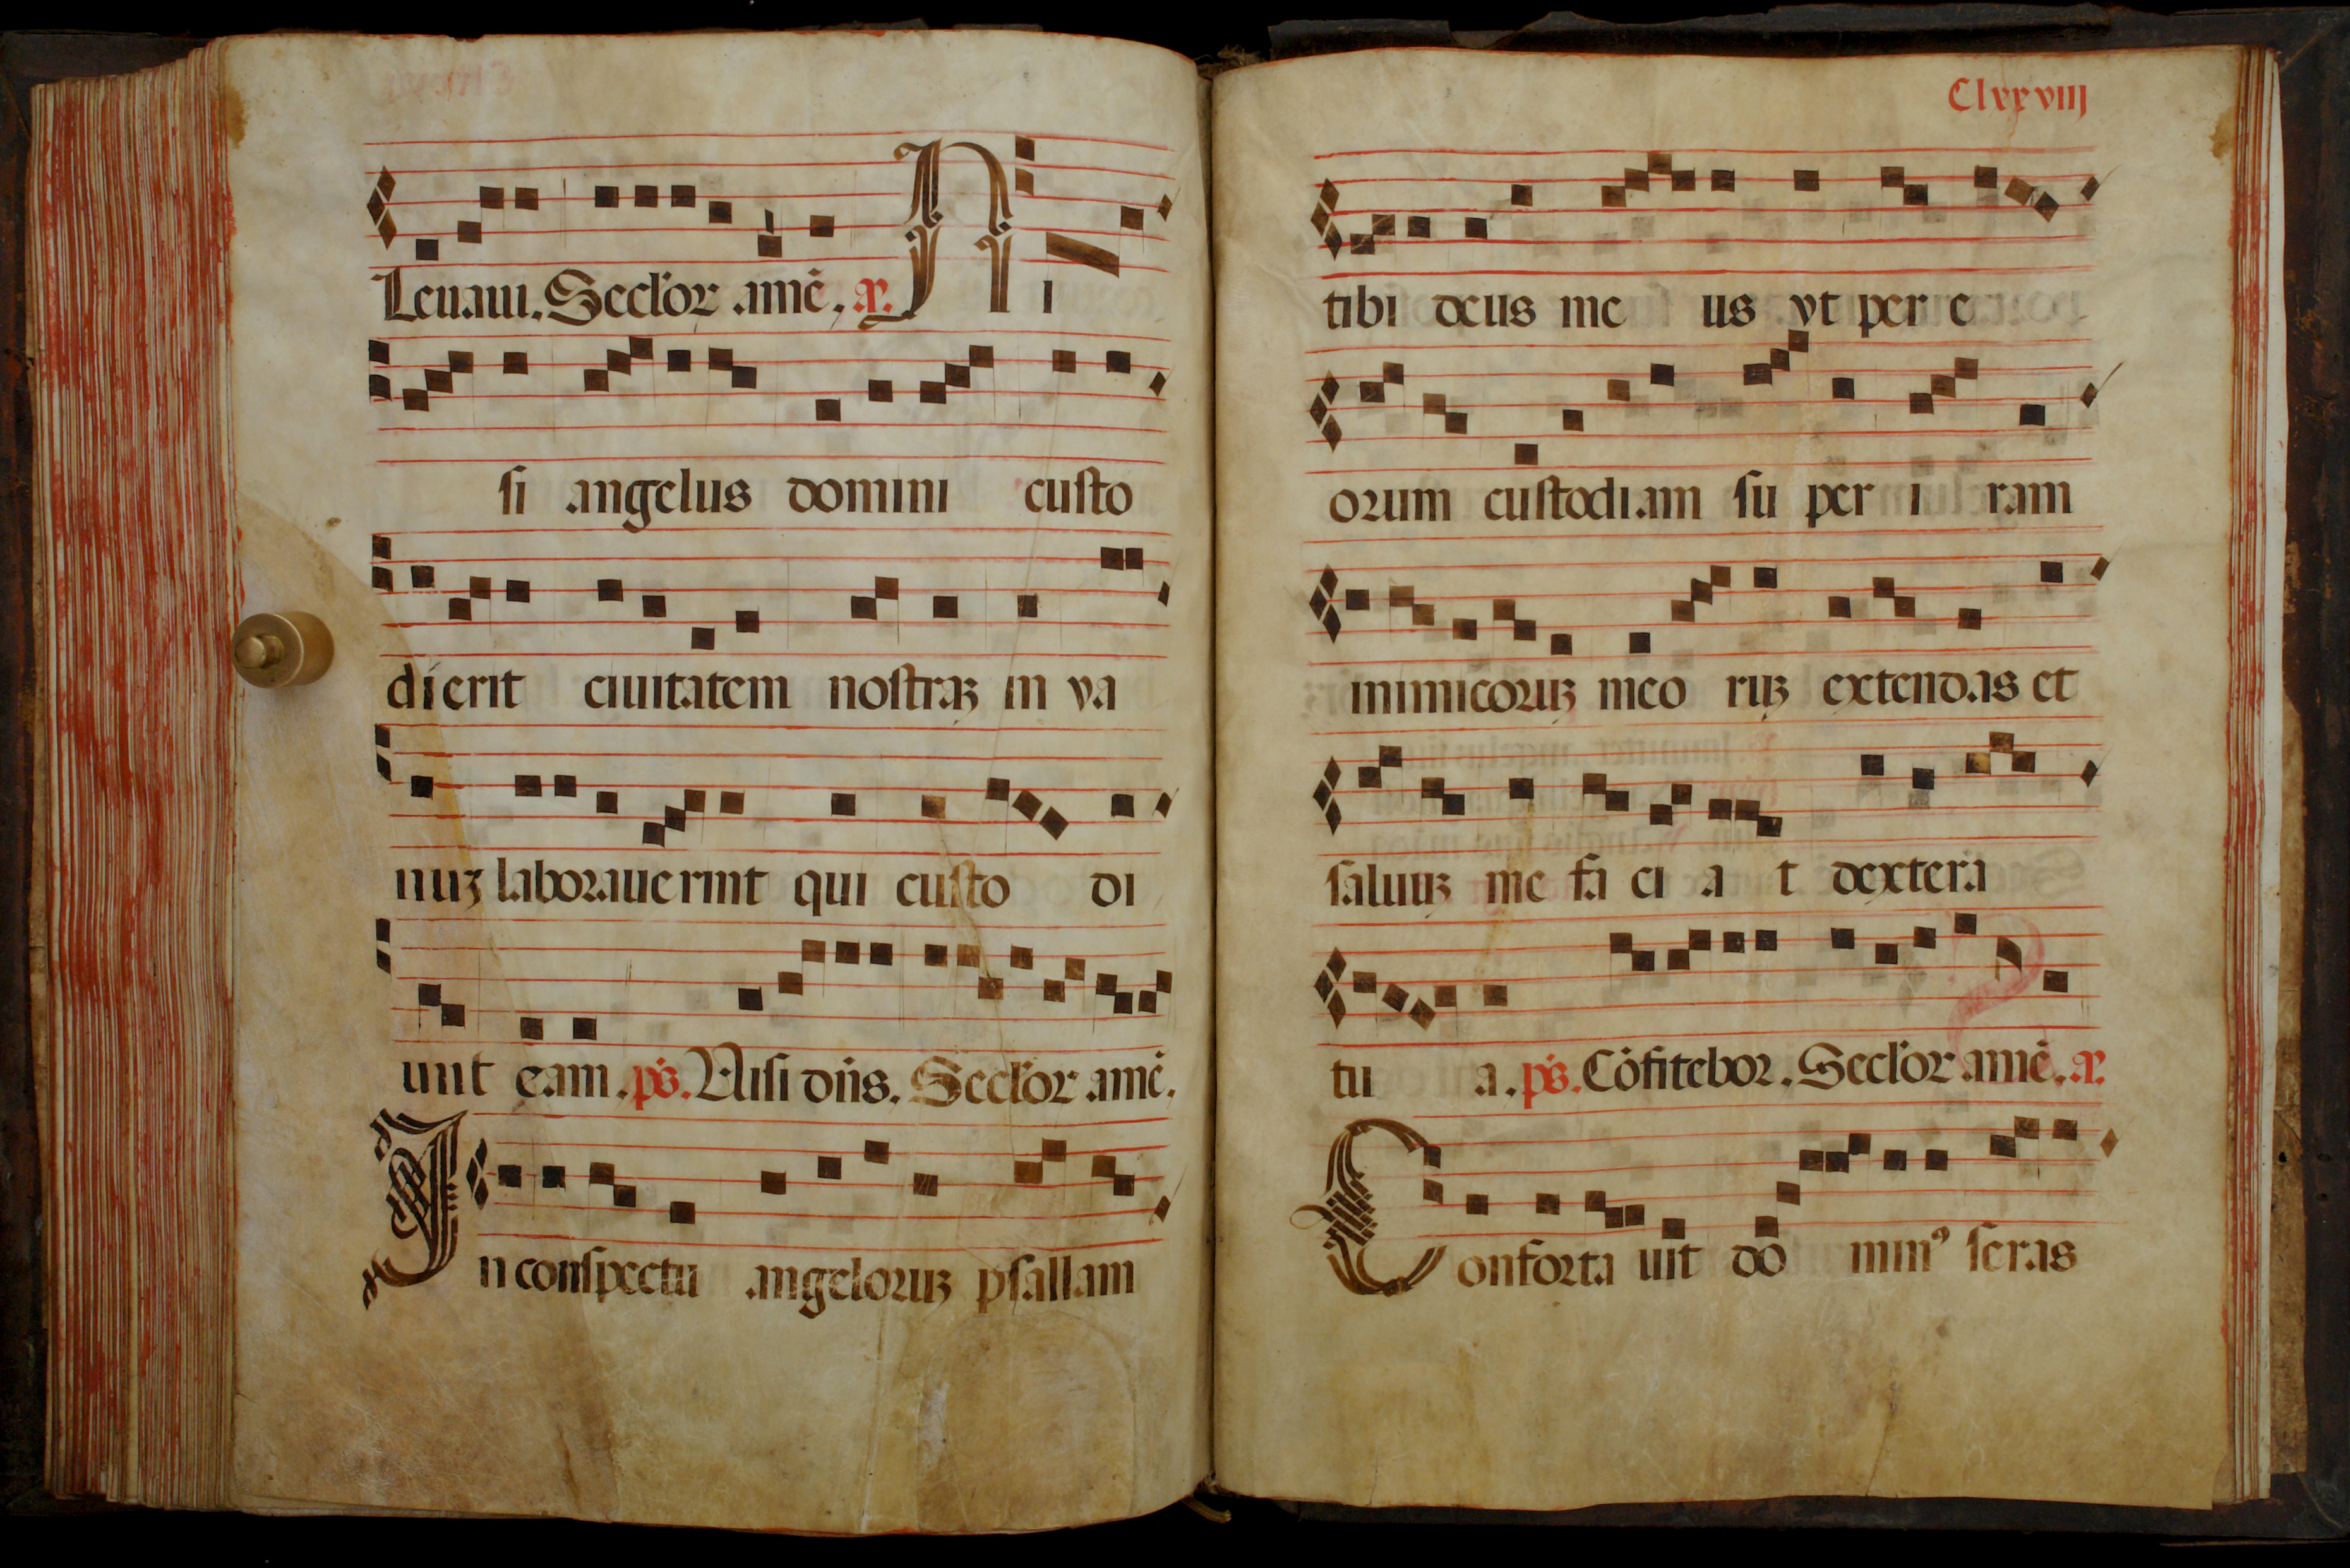 Leuaui. Secl'or .amē. a͞n. Ni
si angelus domini custo
dierit ciuitatem nostraꝫ in va
nuꝫ laborauerint qui custo di
unt eam. ps. Nisi dn̄s. Secl'or amē.
In conspectu angeloruꝫ psallam
Clxxviij
tibi deus me us vt per e
orum custodiam su per i ram
inimicoruꝫ meo ruꝫ extendas et
saluuꝫ me fa ci a t dextera
tu a. ps. Cōfitebor. Secl'or amē. a͞n.
Conforta uit do minꝰ seras